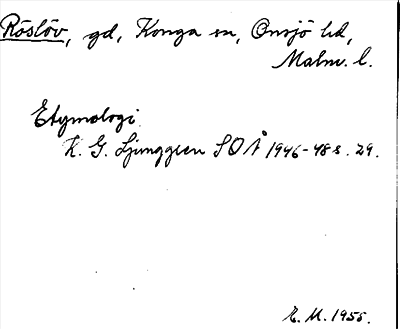 Röslöv, gd, Konga sn, Onsjö hd,
Malm. l.
Etymologi.
K. G. Ljunggren SOÅ 1946-48 s. 29.
E. M. 1955.